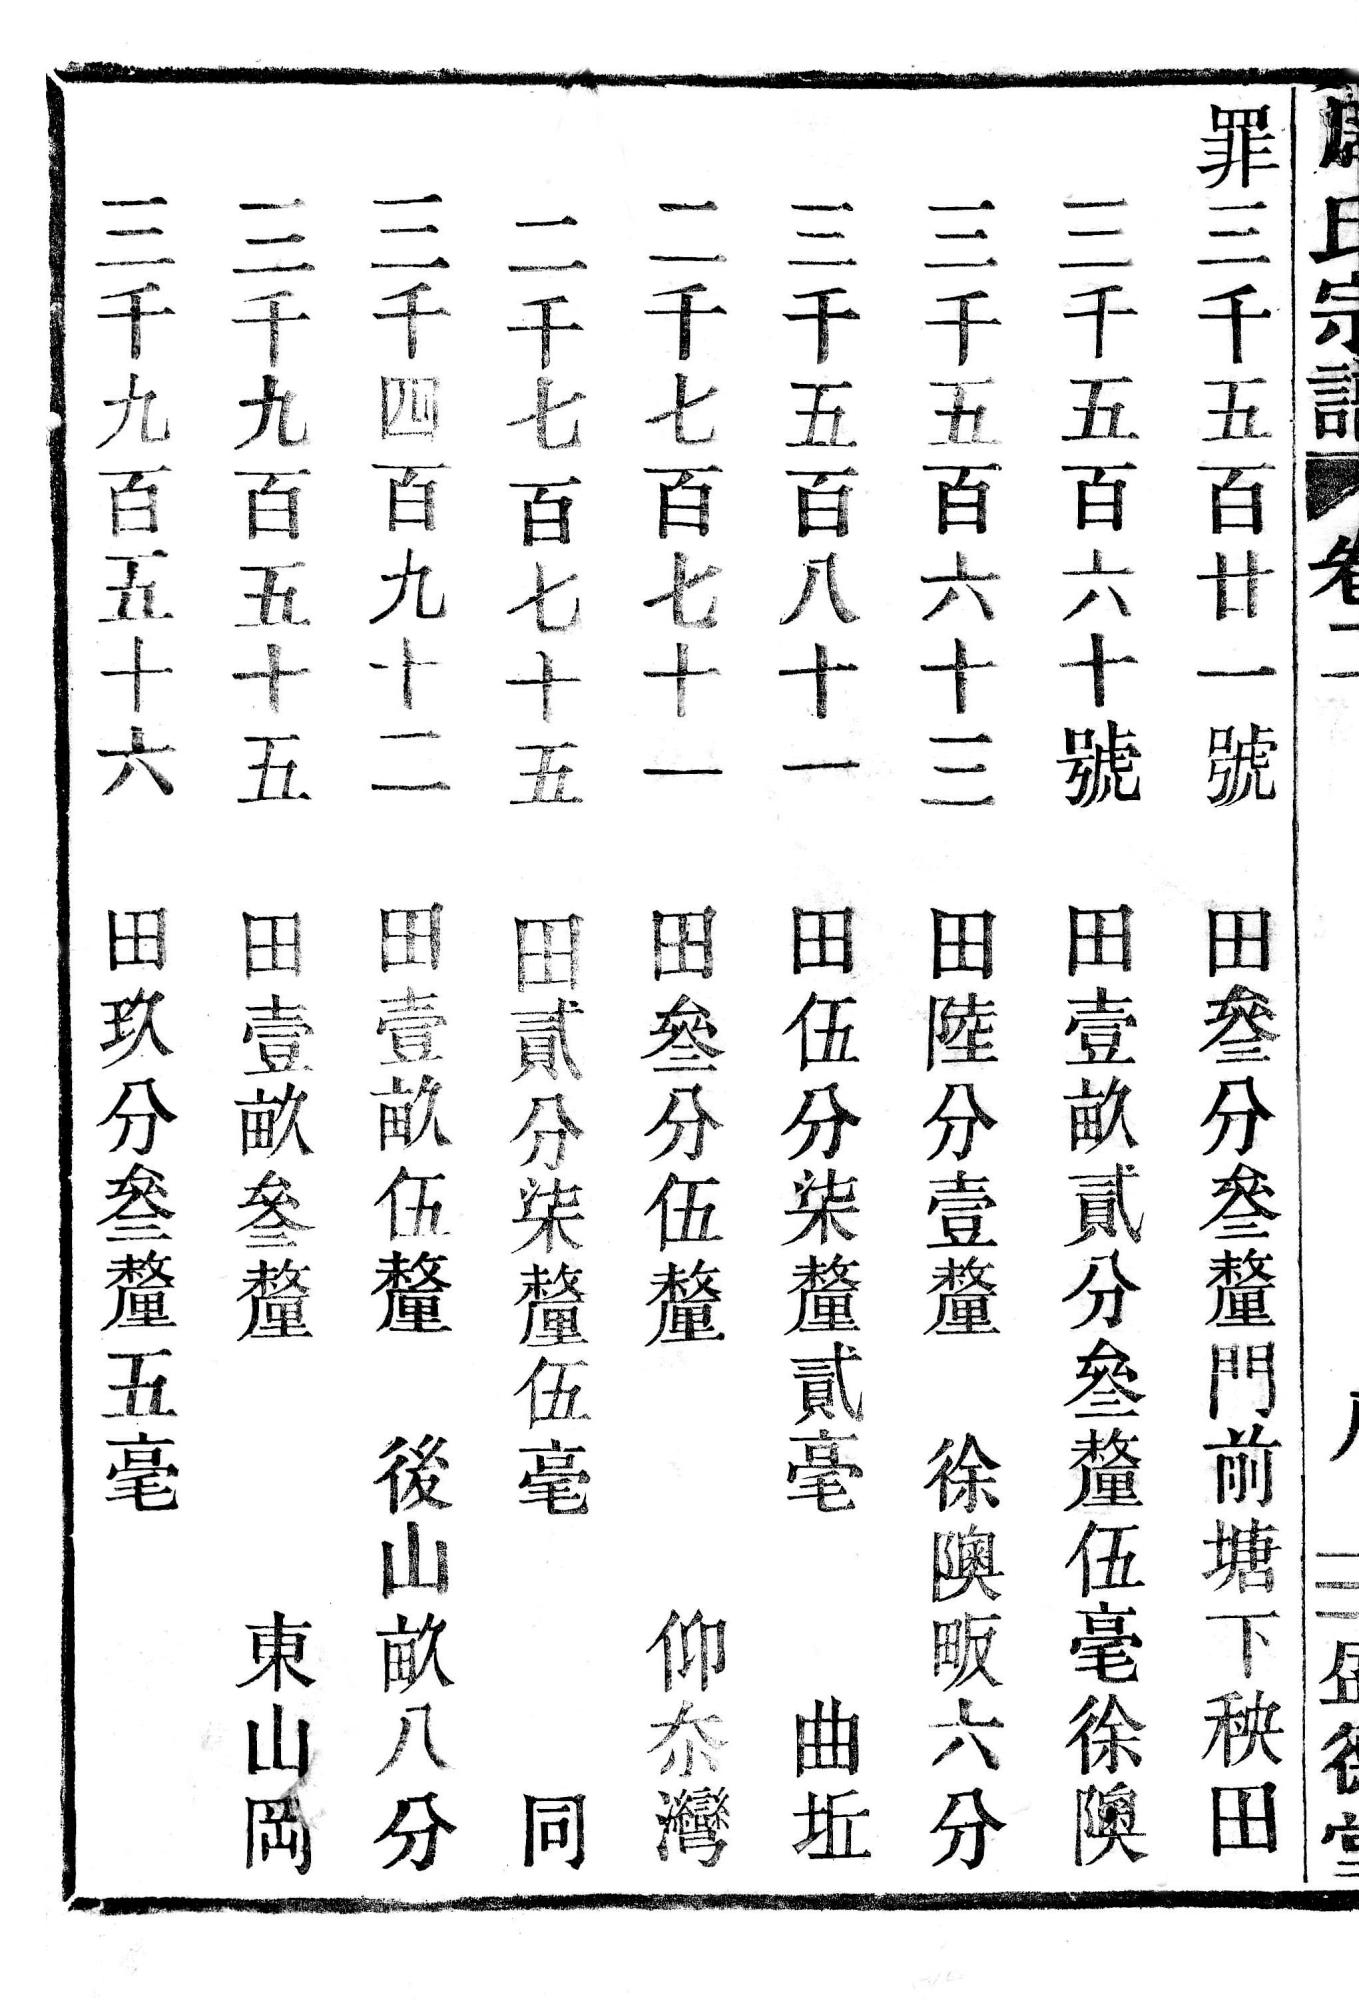 氏宗譜 卷 堂
罪三千五百廿一號 田叄分叄釐門前塘下秧田
三千五百六十號 田壹畝貳分叄釐伍毫徐隩
三千五百六十三 田陸分壹釐 徐隩畈六分
三千五百八十一 田伍分柒釐貳毫 曲坵
二千七百七十一 田叄分伍釐 仰灣
二千七百七十五 田貳分柒釐伍毫 同
三千四百九十二 田壹畝伍釐 後山畝八分
三千九百五十五 田壹畝叄釐 東山岡
三千九百五十六 田玖分叄釐五毫